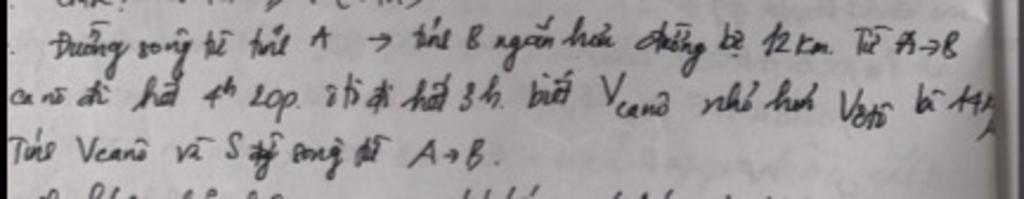 Đường sông từ tỉnh A → tỉnh B ngắn hơn đường bộ 12 km. Từ A→B
ca nô đi hết 4h 20p. ôtô đi hết 3h. biết Vcanô nhỏ hơn Vôtô là
Tính Vcanô và S đg sông từ A→B.